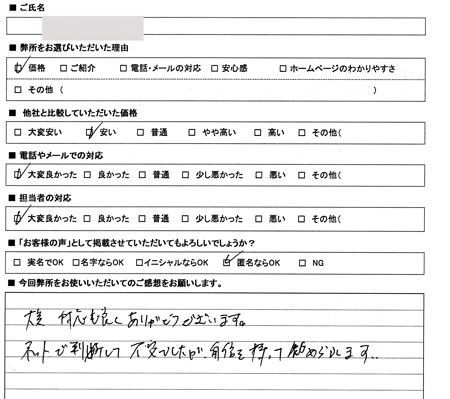 ■ ご氏名
■ 弊所をお選びいただいた理由
☑ 価格 □ ご紹介 □ 電話・メールの対応 □ 安心感 □ ホームページのわかりやすさ
□ その他 ( )
■ 他社と比較していただいた価格
□ 大変安い ☑ 安い □ 普通 □ やや高い □ 高い □ その他(
■ 電話やメールでの対応
☑ 大変良かった □ 良かった □ 普通 □ 少し悪かった □ 悪い □ その他(
■ 担当者の対応
☑ 大変良かった □ 良かった □ 普通 □ 少し悪かった □ 悪い □ その他(
■ 「お客様の声」として掲載させていただいてもよろしいでしょうか?
□ 実名でOK □ 名字ならOK □ イニシャルならOK ☑ 匿名ならOK □ NG
■ 今回弊所をお使いいただいてのご感想をお願いします。
対応も良くありがとうございます。
ネットで判断して不安でしたが、自信を持って勧められます。